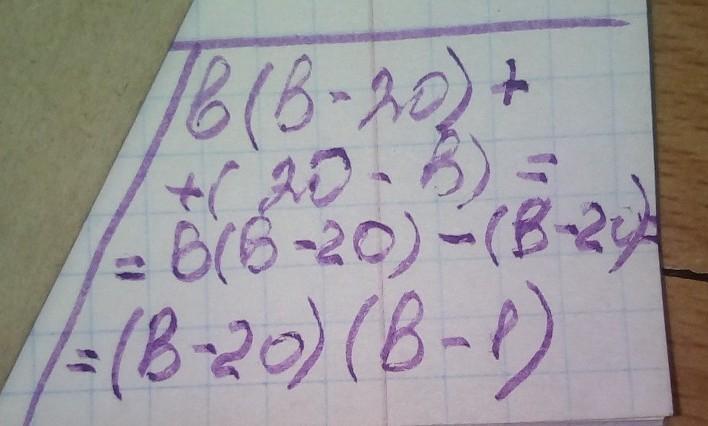 в(в-20)+
+(20-в)=
=в(в-20)-(в-20)=
=(в-20)(в-1)